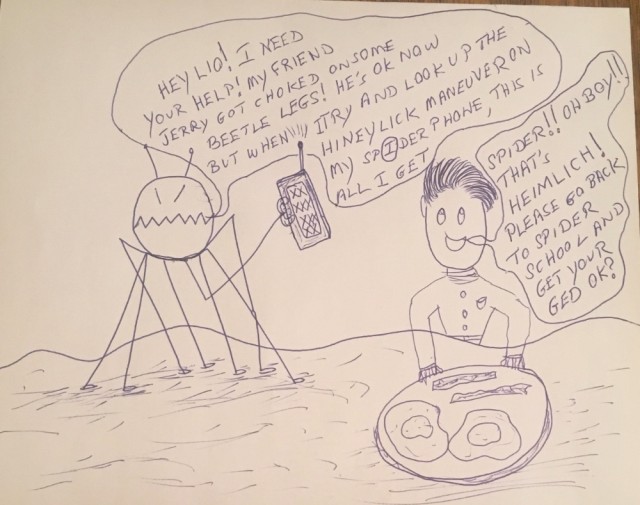 HEY LIO! I NEED
YOUR HELP! MY FRIEND
JERRY GOT CHOKED ON SOME
BEETLE LEGS! HE'S OK NOW
BUT WHEN I TRY AND LOOK UP THE
HINEYLICK MANEUVER ON
MY SPIDER PHONE, THIS IS
ALL I GET
SPIDER!! OH BOY!!
THAT'S
HEIMLICH!
PLEASE GO BACK
TO SPIDER
SCHOOL AND
GET YOUR
GED OK?